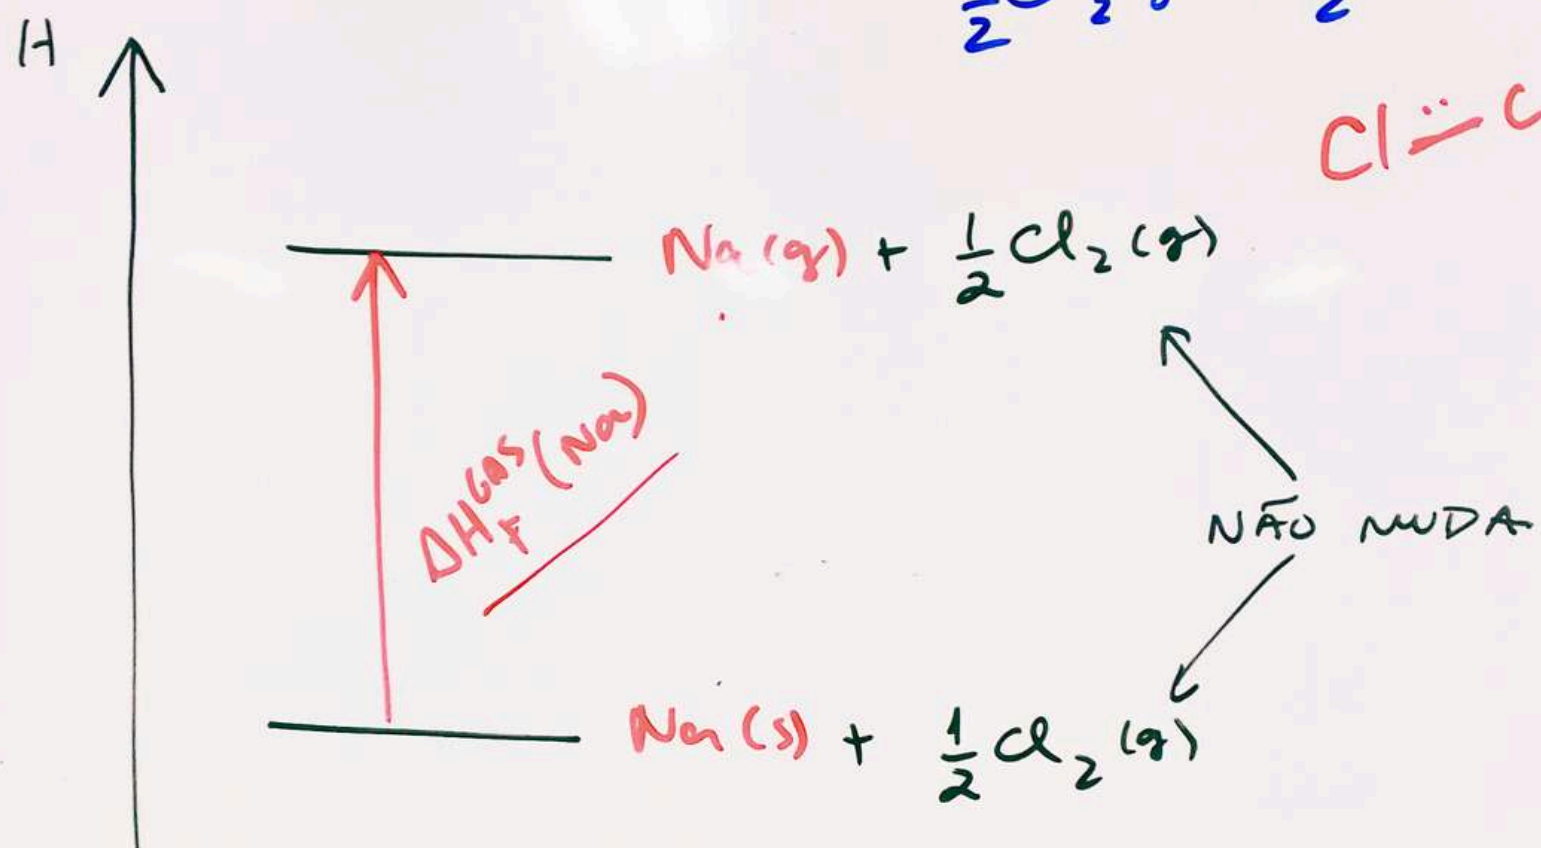 H
Cl
Na(g) + 1/2 Cl₂(g)
ΔH_F^GÁS (Na)
NÃO MUDA
Na(s) + 1/2 Cl₂(g)